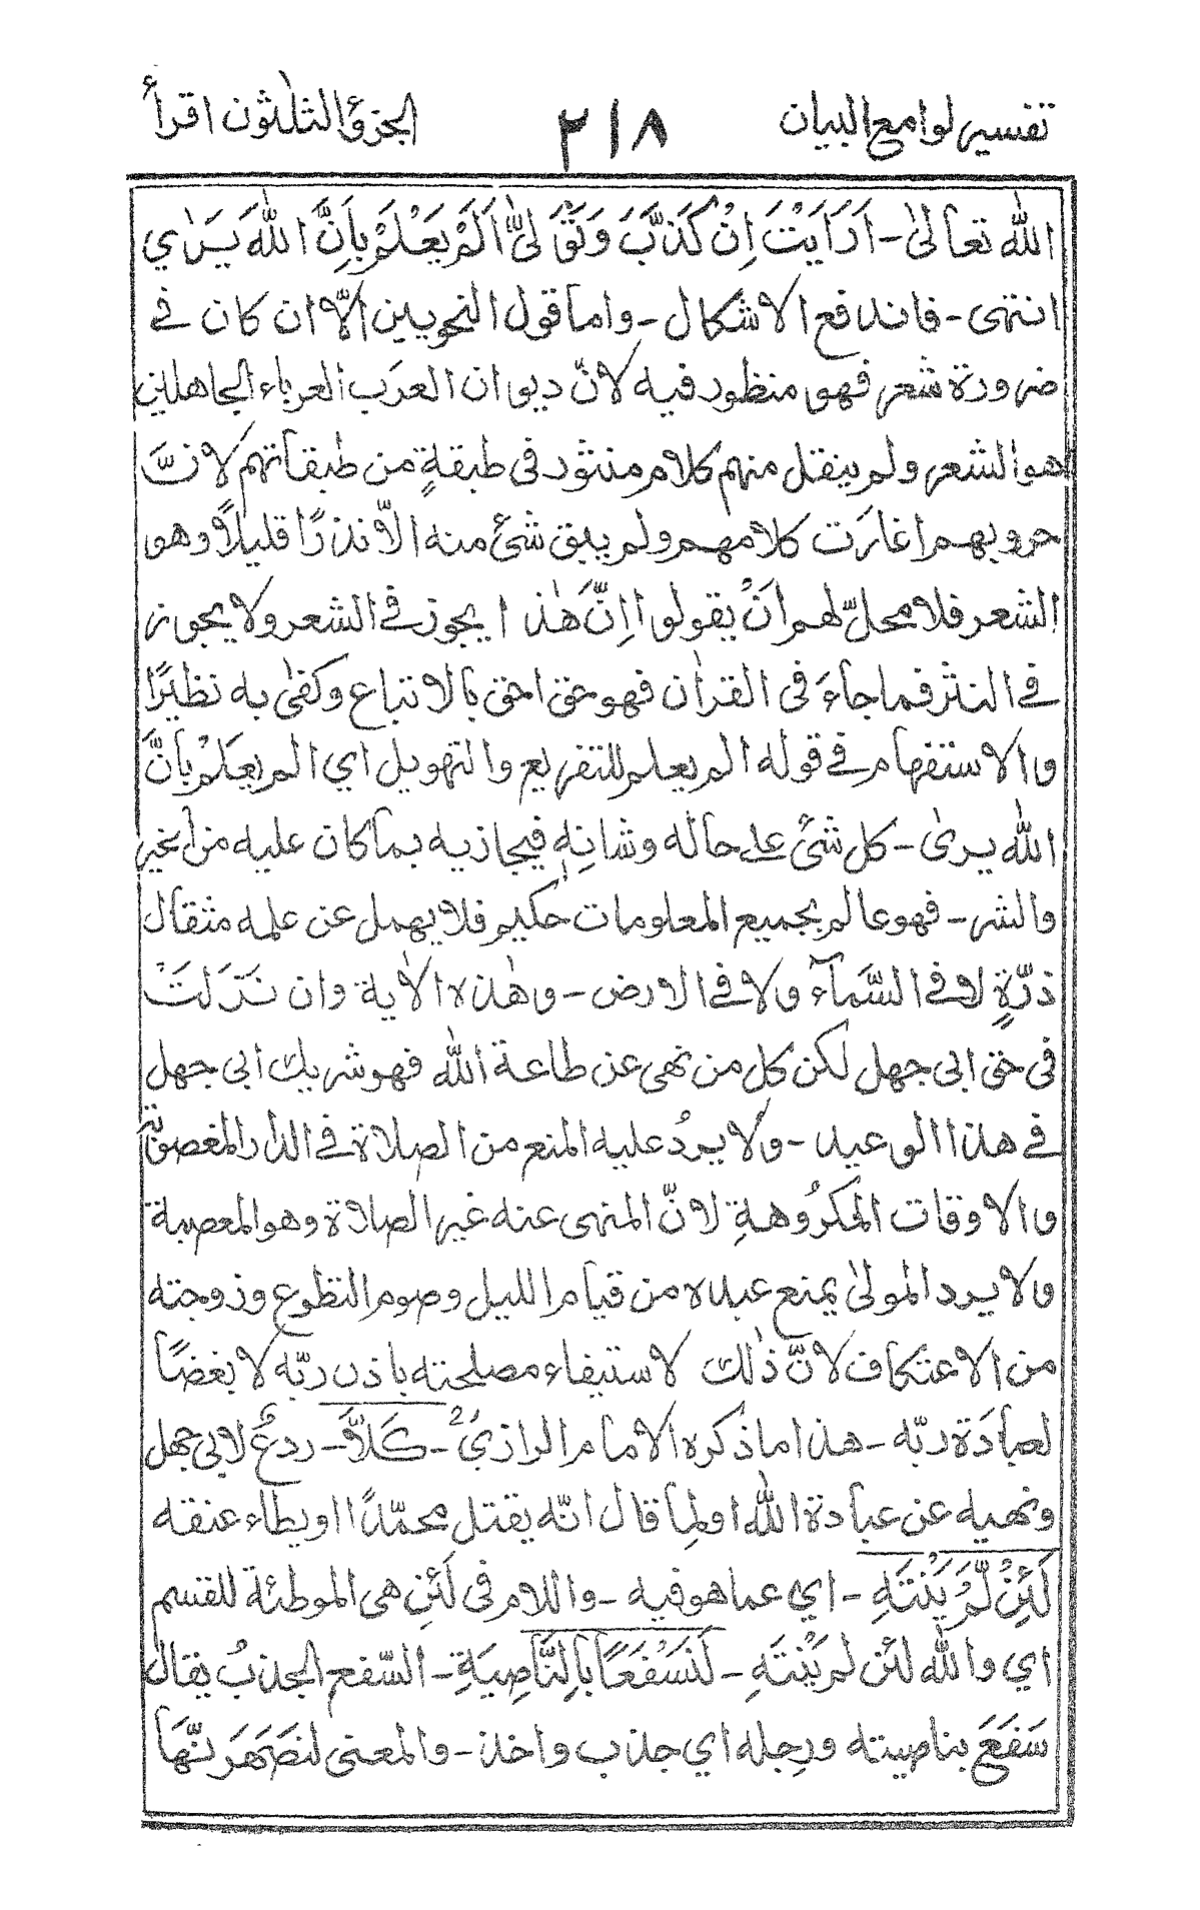 تفسير لوامع البيان ٢١٨ الجزؤ الثلثون اقرأ
الله تعالى - اَرَاَيْتَ اِنْ كَذَّبَ وَتَوَلّٰى اَلَمْ يَعْلَمْ بِاَنَّ اللهَ يَرٰي
انتهى - فاندفع الاشكال - واما قول النحويين الّا ان كان في
ضرورة شعر فهو منظور فيه لانّ ديوان العرب العرباء الجاهلين
هو الشعر ولم ينقل منهم كلام منثور فى طبقةٍ من طبقاتهم لانّ
حروبهم اغارَت كلامهم ولم يبق شئ منه الّا نذرًا قليلاً وهو
الشعر فلا محلّ لهم اَنْ يقولوا اِنَّ هٰذا يجوز في الشعر ولا يجوز
في النثر فما جاءَ فى القراٰن فهو حق احق بالاتباع وكفىٰ به نظيرًا
والاستفهام في قوله الم يعلم للتقريع والتهويل اي الم يعلَمْ بأنَّ
الله يرىٰ - كل شئ على حاله وشانِهٖ فيجازيه بما كان عليه من الخير
والشر - فهو عالم بجميع المعلومات حكيم فلا يهمل عن علمه مثقال
ذرّةٍ لا في السَّمآء ولا في الارض - وهٰذه الاٰية وان نَزَلتْ
فى حق ابى جهل لكن كل من نهى عن طاعة الله فهو شريك ابى جهل
في هذا الوعيد - ولا يردُ عليه المنع من الصلاة في الدار المغصوبة
والاوقات المكرُوهةِ لانّ المنهى عنه غير الصلاة وهو المعصية
ولا يرد المولىٰ يمنع عبده من قيام الليل وصوم التطوع وزوجته
من الاعتكاف لانّ ذٰلك لاستيفاء مصلحته باذن ربّه لا بغضًا
لعبادَة ربّه - هذا ما ذكره الامام الرازيُ - كَلَّا - ردعٌ لابى جهل
ونهيه عن عبادة الله او لما قال انّه يقتل محمّدًا او يطاء عنقه
لَئِنْ لَّمْ يَنْتَهِ - اي عما هو فيه - واللام فى لَئِن هى الموطئة للقسم
اي والله لئن لم يَنْتَهِ - لَنَسْفَعًا بِالنَّاصِيَةِ - السّفع الجذبُ يقال
سَفَعَ بناصيته ورِجله اي جذب واخذ - والمعنى لنصَهَرنّهَا